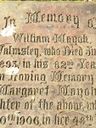 In Memory of
William Mayoh,
Walmsley, who Died
in his 82nd Year
In Loving Memory
Margaret Mayoh
of the above, who
1906, in her 48th